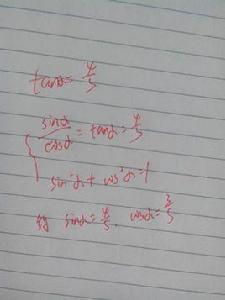 tanα = 4/3
{ sinα/cosα = tanα = 4/3
sin²α + cos²α = 1
得 sinα = 4/5, cosα = 3/5